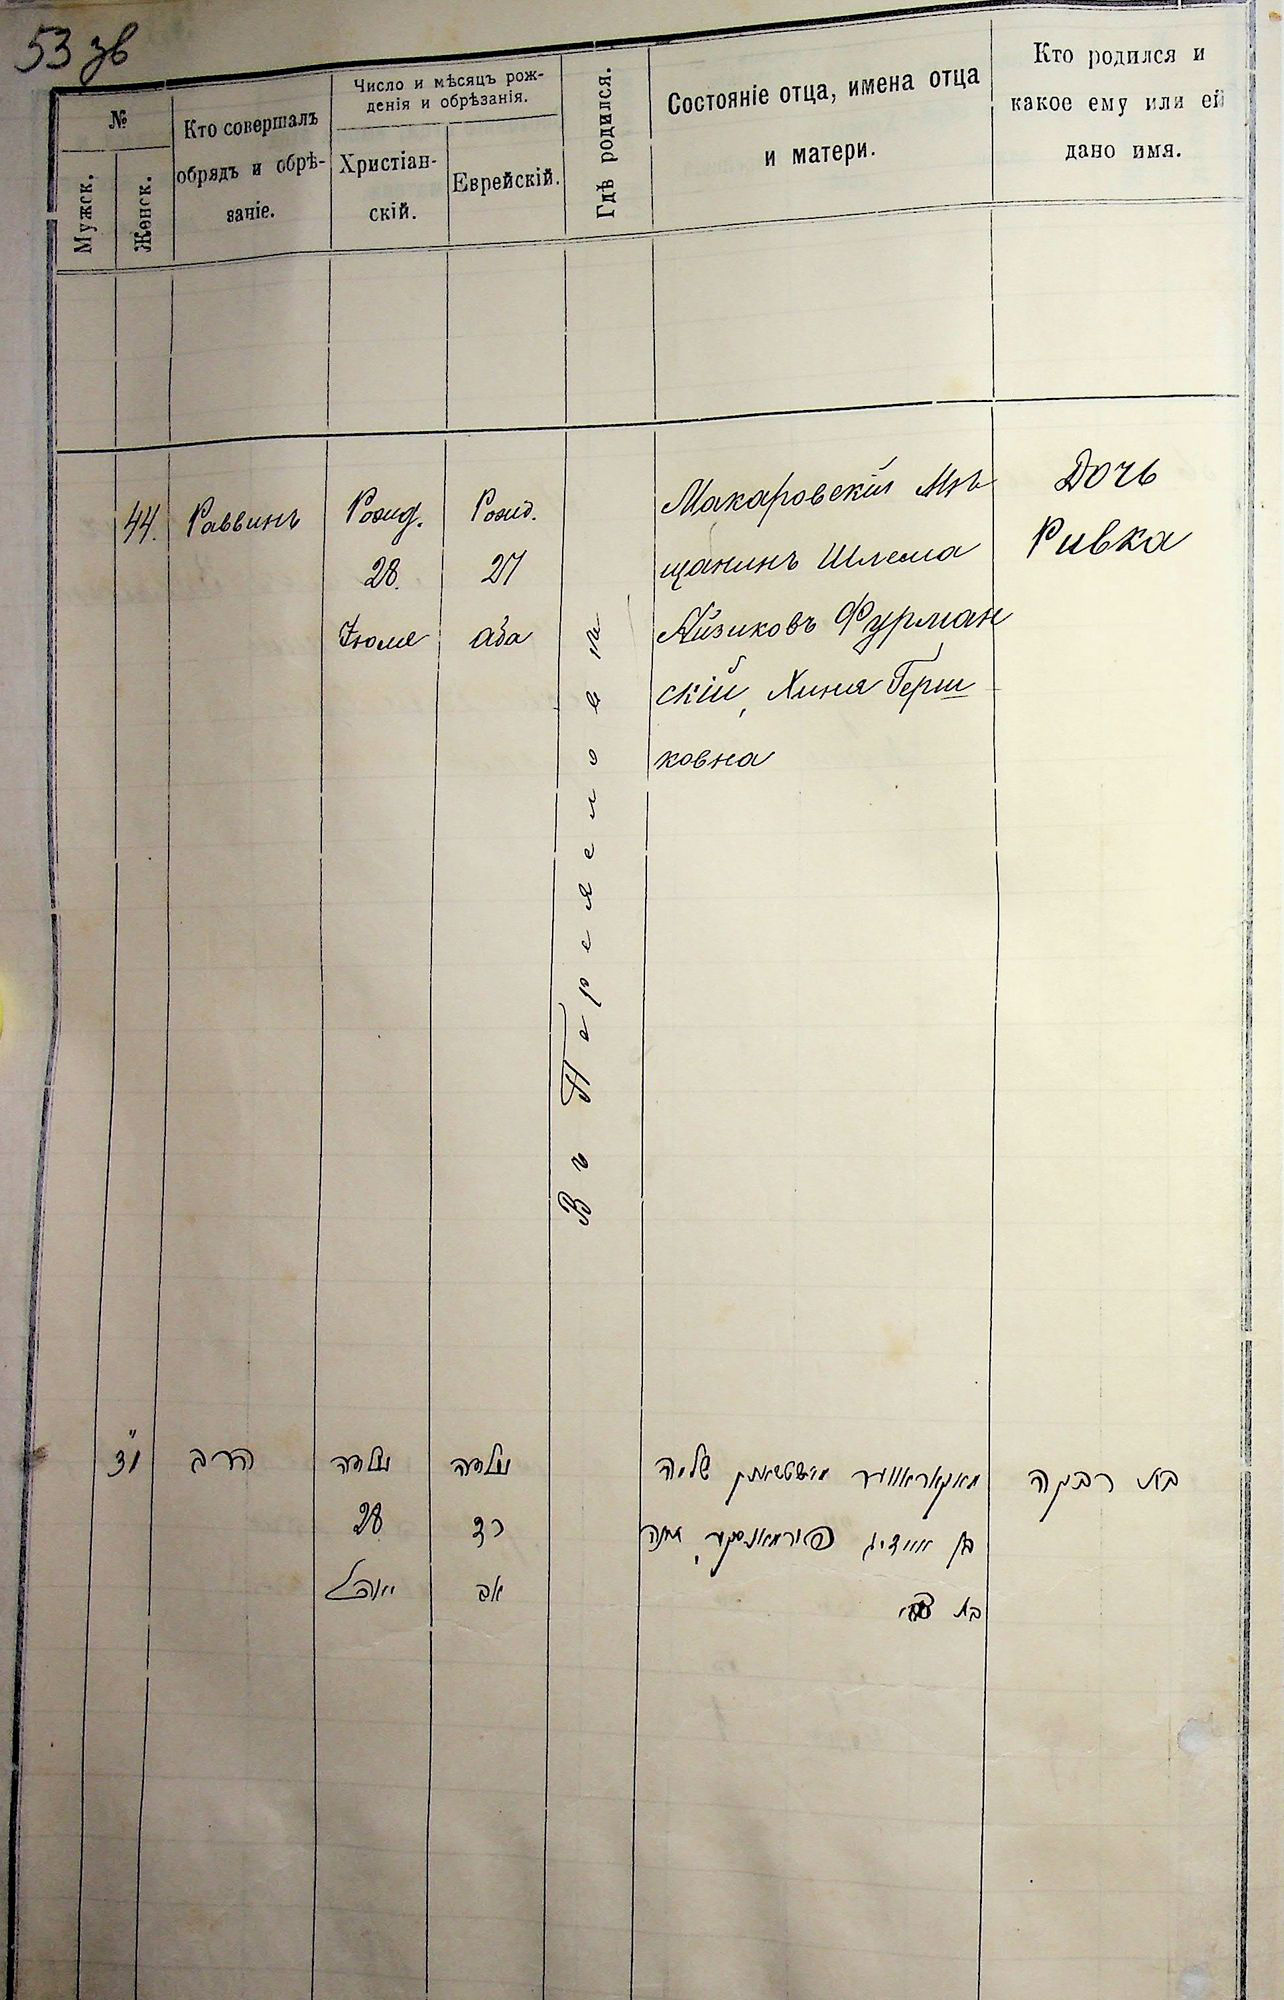 53 зв
№
Мужск.
Женск.
Кто совершалъ
обрядъ и обрѣ-
заніе.
Число и мѣсяцъ рож-
денія и обрѣзанія.
Христіан-
скій.
Еврейскій.
Гдѣ родился.
Состояніе отца, имена отца
и матери.
Кто родился и
какое ему или ей
дано имя.
44.
Раввинъ
Рожд.
28
Іюля
Рожд.
27
Ава
Въ
Макаровскій Мѣ
щанинъ Шлема
Айзиковъ Фурман
скій, Хиня Герш
ковна
Дочь
Ривка
הרב
נולדה
28
יולי
נולדה
כז
אב
מאקאראווער שלמה
בן אייזיג פורמאנסקי, חינה
בת
בת רבקה